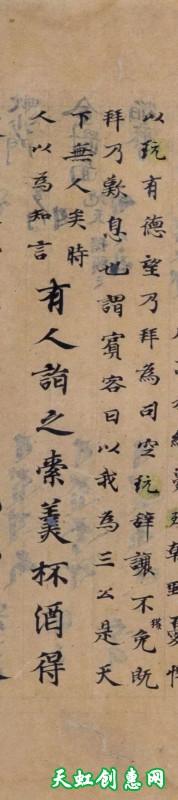 以玩有德望乃拜為司空玩辭讓不獲免既
拜乃歎息也謂賓客曰以我為三公是天
下無人矣時
人以為知言
有人詣之索美杯酒得
天虹创惠网